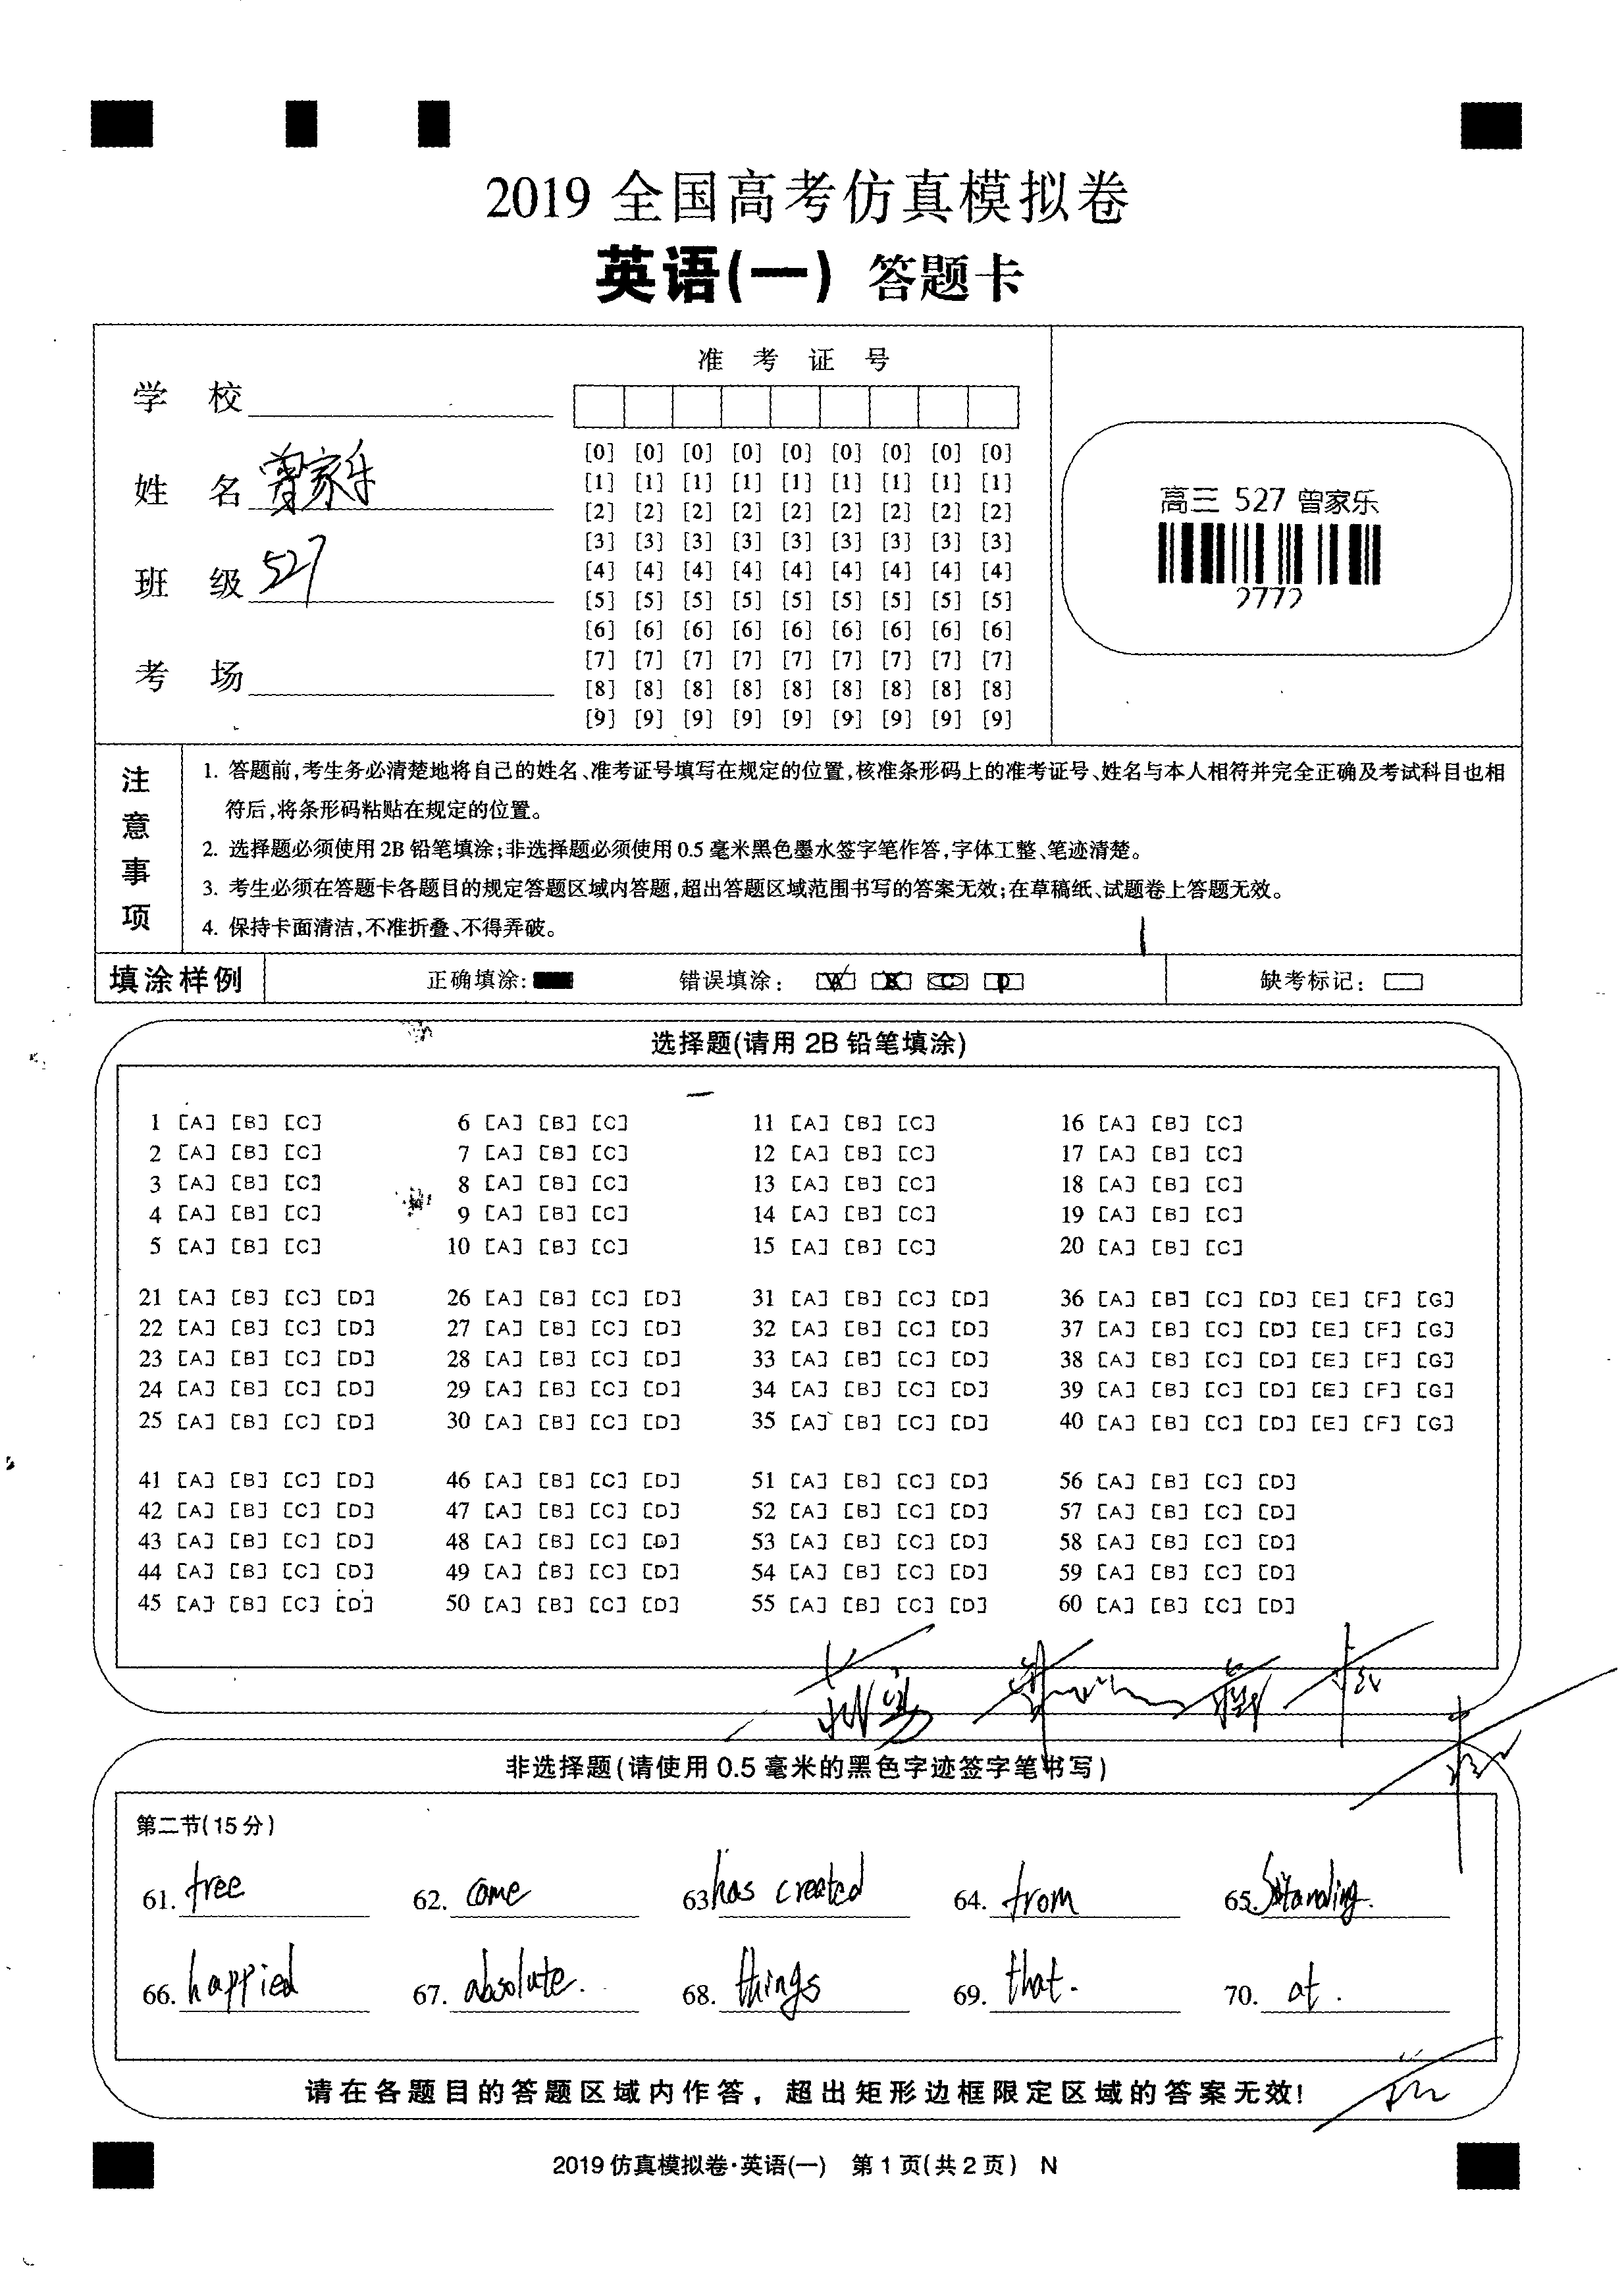 2019 全国高考仿真模拟卷
英语(一) 答题卡
准 考 证 号
学 校
姓 名 曾家乐
班 级 527
考 场
[0] [0] [0] [0] [0] [0] [0] [0] [0]
[1] [1] [1] [1] [1] [1] [1] [1] [1]
[2] [2] [2] [2] [2] [2] [2] [2] [2]
[3] [3] [3] [3] [3] [3] [3] [3] [3]
[4] [4] [4] [4] [4] [4] [4] [4] [4]
[5] [5] [5] [5] [5] [5] [5] [5] [5]
[6] [6] [6] [6] [6] [6] [6] [6] [6]
[7] [7] [7] [7] [7] [7] [7] [7] [7]
[8] [8] [8] [8] [8] [8] [8] [8] [8]
[9] [9] [9] [9] [9] [9] [9] [9] [9]
高三 527 曾家乐
2772
注意事项
1. 答题前,考生务必清楚地将自己的姓名、准考证号填写在规定的位置,核准条形码上的准考证号、姓名与本人相符并完全正确及考试科目也相
符后,将条形码粘贴在规定的位置。
2. 选择题必须使用 2B 铅笔填涂;非选择题必须使用 0.5 毫米黑色墨水签字笔作答,字体工整、笔迹清楚。
3. 考生必须在答题卡各题目的规定答题区域内答题,超出答题区域范围书写的答案无效;在草稿纸、试题卷上答题无效。
4. 保持卡面清洁,不准折叠、不得弄破。
填涂样例 正确填涂: 错误填涂: 缺考标记:
选择题(请用 2B 铅笔填涂)
1 [A] [B] [C] 6 [A] [B] [C] 11 [A] [B] [C] 16 [A] [B] [C]
2 [A] [B] [C] 7 [A] [B] [C] 12 [A] [B] [C] 17 [A] [B] [C]
3 [A] [B] [C] 8 [A] [B] [C] 13 [A] [B] [C] 18 [A] [B] [C]
4 [A] [B] [C] 9 [A] [B] [C] 14 [A] [B] [C] 19 [A] [B] [C]
5 [A] [B] [C] 10 [A] [B] [C] 15 [A] [B] [C] 20 [A] [B] [C]
21 [A] [B] [C] [D] 26 [A] [B] [C] [D] 31 [A] [B] [C] [D] 36 [A] [B] [C] [D] [E] [F] [G]
22 [A] [B] [C] [D] 27 [A] [B] [C] [D] 32 [A] [B] [C] [D] 37 [A] [B] [C] [D] [E] [F] [G]
23 [A] [B] [C] [D] 28 [A] [B] [C] [D] 33 [A] [B] [C] [D] 38 [A] [B] [C] [D] [E] [F] [G]
24 [A] [B] [C] [D] 29 [A] [B] [C] [D] 34 [A] [B] [C] [D] 39 [A] [B] [C] [D] [E] [F] [G]
25 [A] [B] [C] [D] 30 [A] [B] [C] [D] 35 [A] [B] [C] [D] 40 [A] [B] [C] [D] [E] [F] [G]
41 [A] [B] [C] [D] 46 [A] [B] [C] [D] 51 [A] [B] [C] [D] 56 [A] [B] [C] [D]
42 [A] [B] [C] [D] 47 [A] [B] [C] [D] 52 [A] [B] [C] [D] 57 [A] [B] [C] [D]
43 [A] [B] [C] [D] 48 [A] [B] [C] [D] 53 [A] [B] [C] [D] 58 [A] [B] [C] [D]
44 [A] [B] [C] [D] 49 [A] [B] [C] [D] 54 [A] [B] [C] [D] 59 [A] [B] [C] [D]
45 [A] [B] [C] [D] 50 [A] [B] [C] [D] 55 [A] [B] [C] [D] 60 [A] [B] [C] [D]
非选择题(请使用 0.5 毫米的黑色字迹签字笔书写)
第二节(15 分)
61. free 62. come 63. has created 64. from 65. Standing.
66. happied 67. absolute. 68. things 69. that. 70. at.
请在各题目的答题区域内作答，超出矩形边框限定区域的答案无效!
2019 仿真模拟卷·英语(一) 第 1 页(共 2 页) N